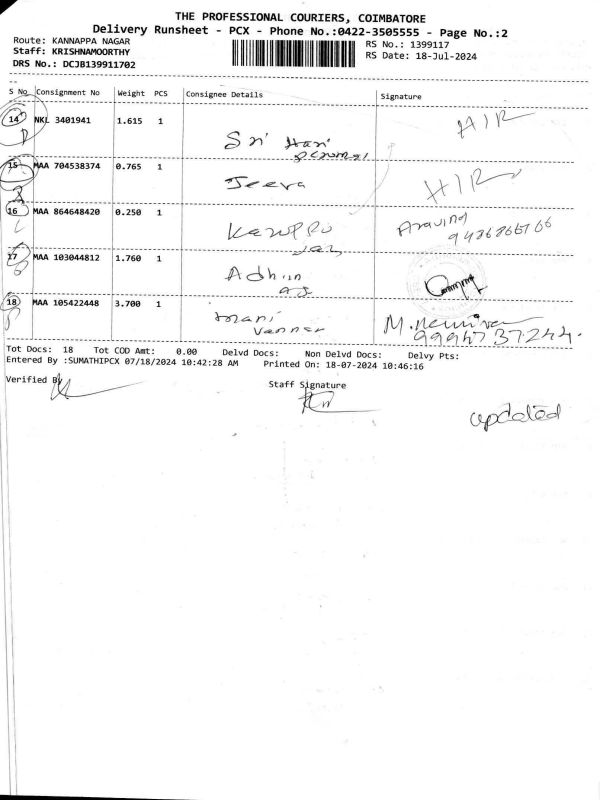 THE PROFESSIONAL COURIERS, COIMBATORE
Delivery Runsheet - PCX - Phone No.:0422-3505555 - Page No.:2
Route: KANNAPPA NAGAR
RS No.: 1399117
Staff: KRISHNAMOORTHY
RS Date: 18-Jul-2024
DRS No.: DCJB139911702
S No Consignment No Weight PCS Consignee Details Signature
14 NKL 3401941 1.615 1
Sri Hari
HIR
15 MAA 704538374 0.765 1
Jeeva
HIR
16 MAA 864648420 0.250 1
Aravind
17 MAA 103044812 1.760 1
18 MAA 105422448 3.700 1
mani
Tot Docs: 18 Tot COD Amt: 0.00 Delvd Docs: Non Delvd Docs: Delvy Pts:
Entered By :SUMATHIPCX 07/18/2024 10:42:28 AM Printed On: 18-07-2024 10:46:16
Verified By
Staff Signature
updated